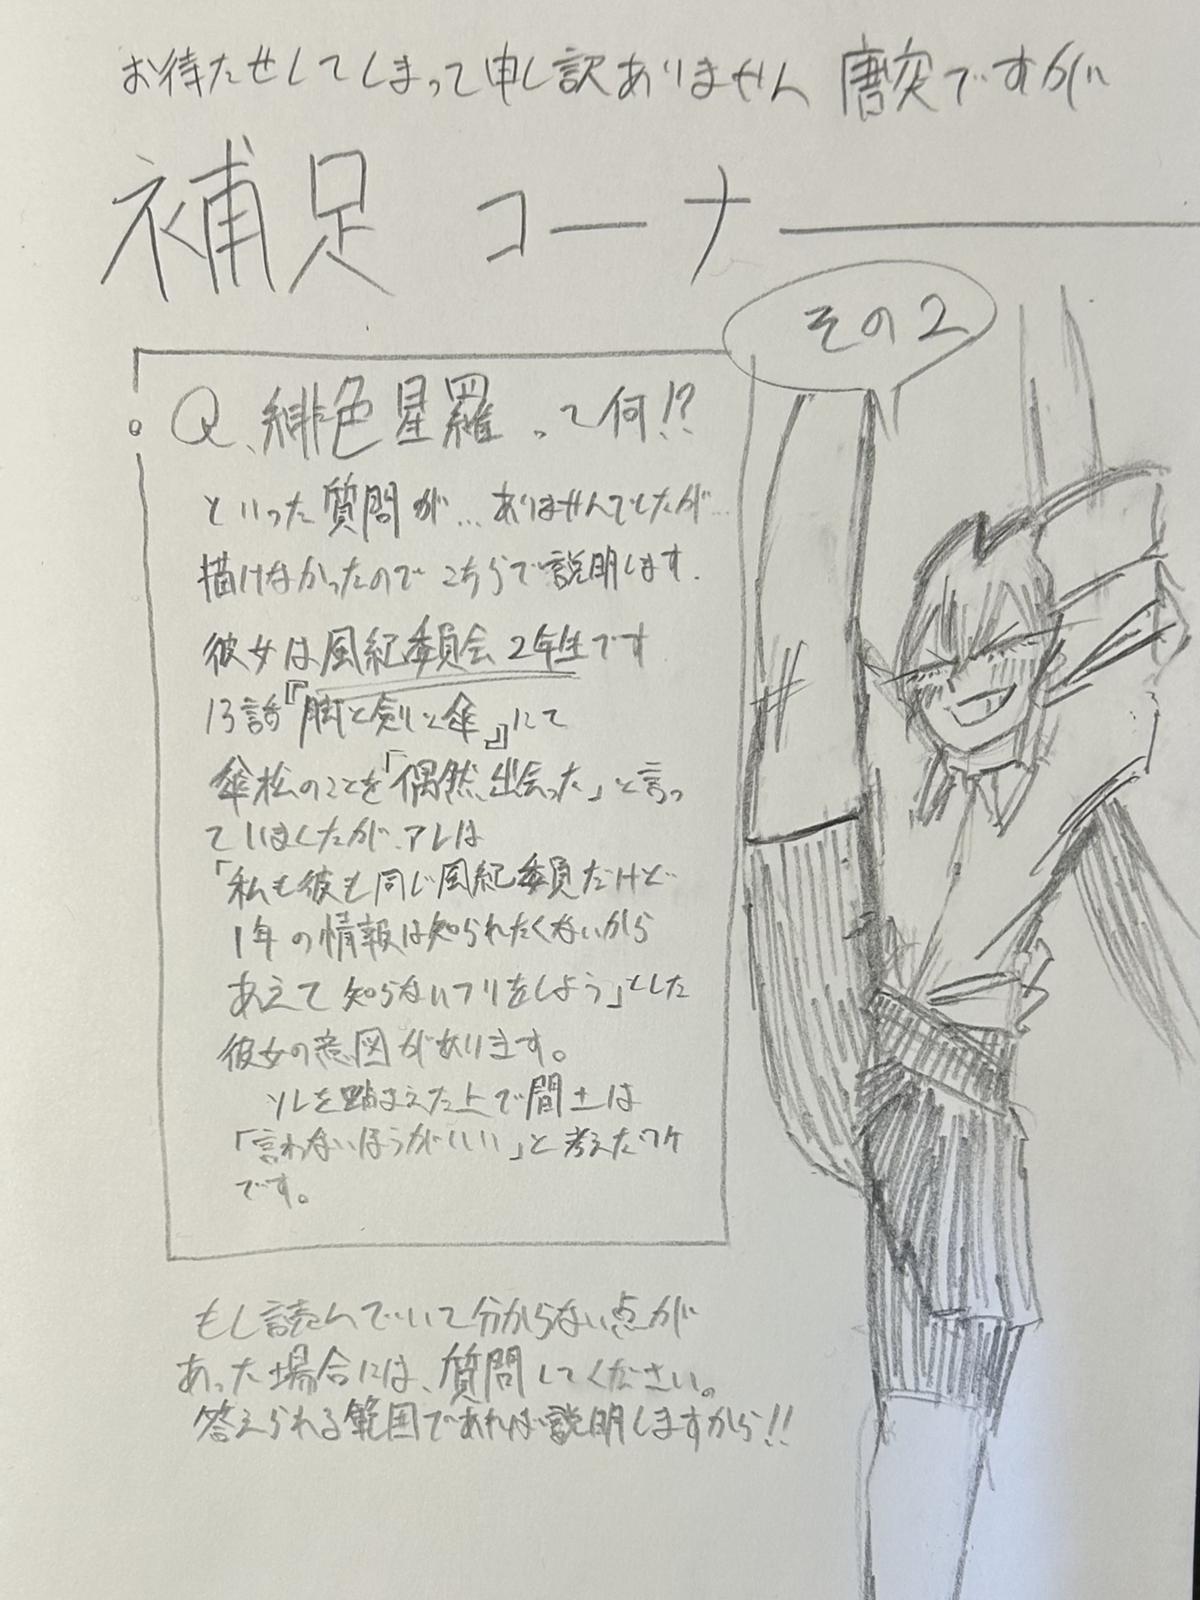 お待たせしてしまって申し訳ありません 唐突ですが
補足コーナー
その2
Q、緋色星羅 って何!?
といった質問が…ありませんでしたが…
描けなかったので こちらで説明します.
彼女は風紀委員会2年生です
13話『脚と剣と傘』にて
傘松のことを「偶然出会った」と言っ
ていましたが、アレは
「私も彼も同じ風紀委員だけど
1年の情報は知られたくないから
あえて知らないフリをしよう」とした
彼女の意図があります。
ソレを踏まえた上で間土は
「言わないほうがいい」と考えたワケ
です。
もし読んでいて分からない点が
あった場合には、質問してください。
答えられる範囲であれば説明しますから!!